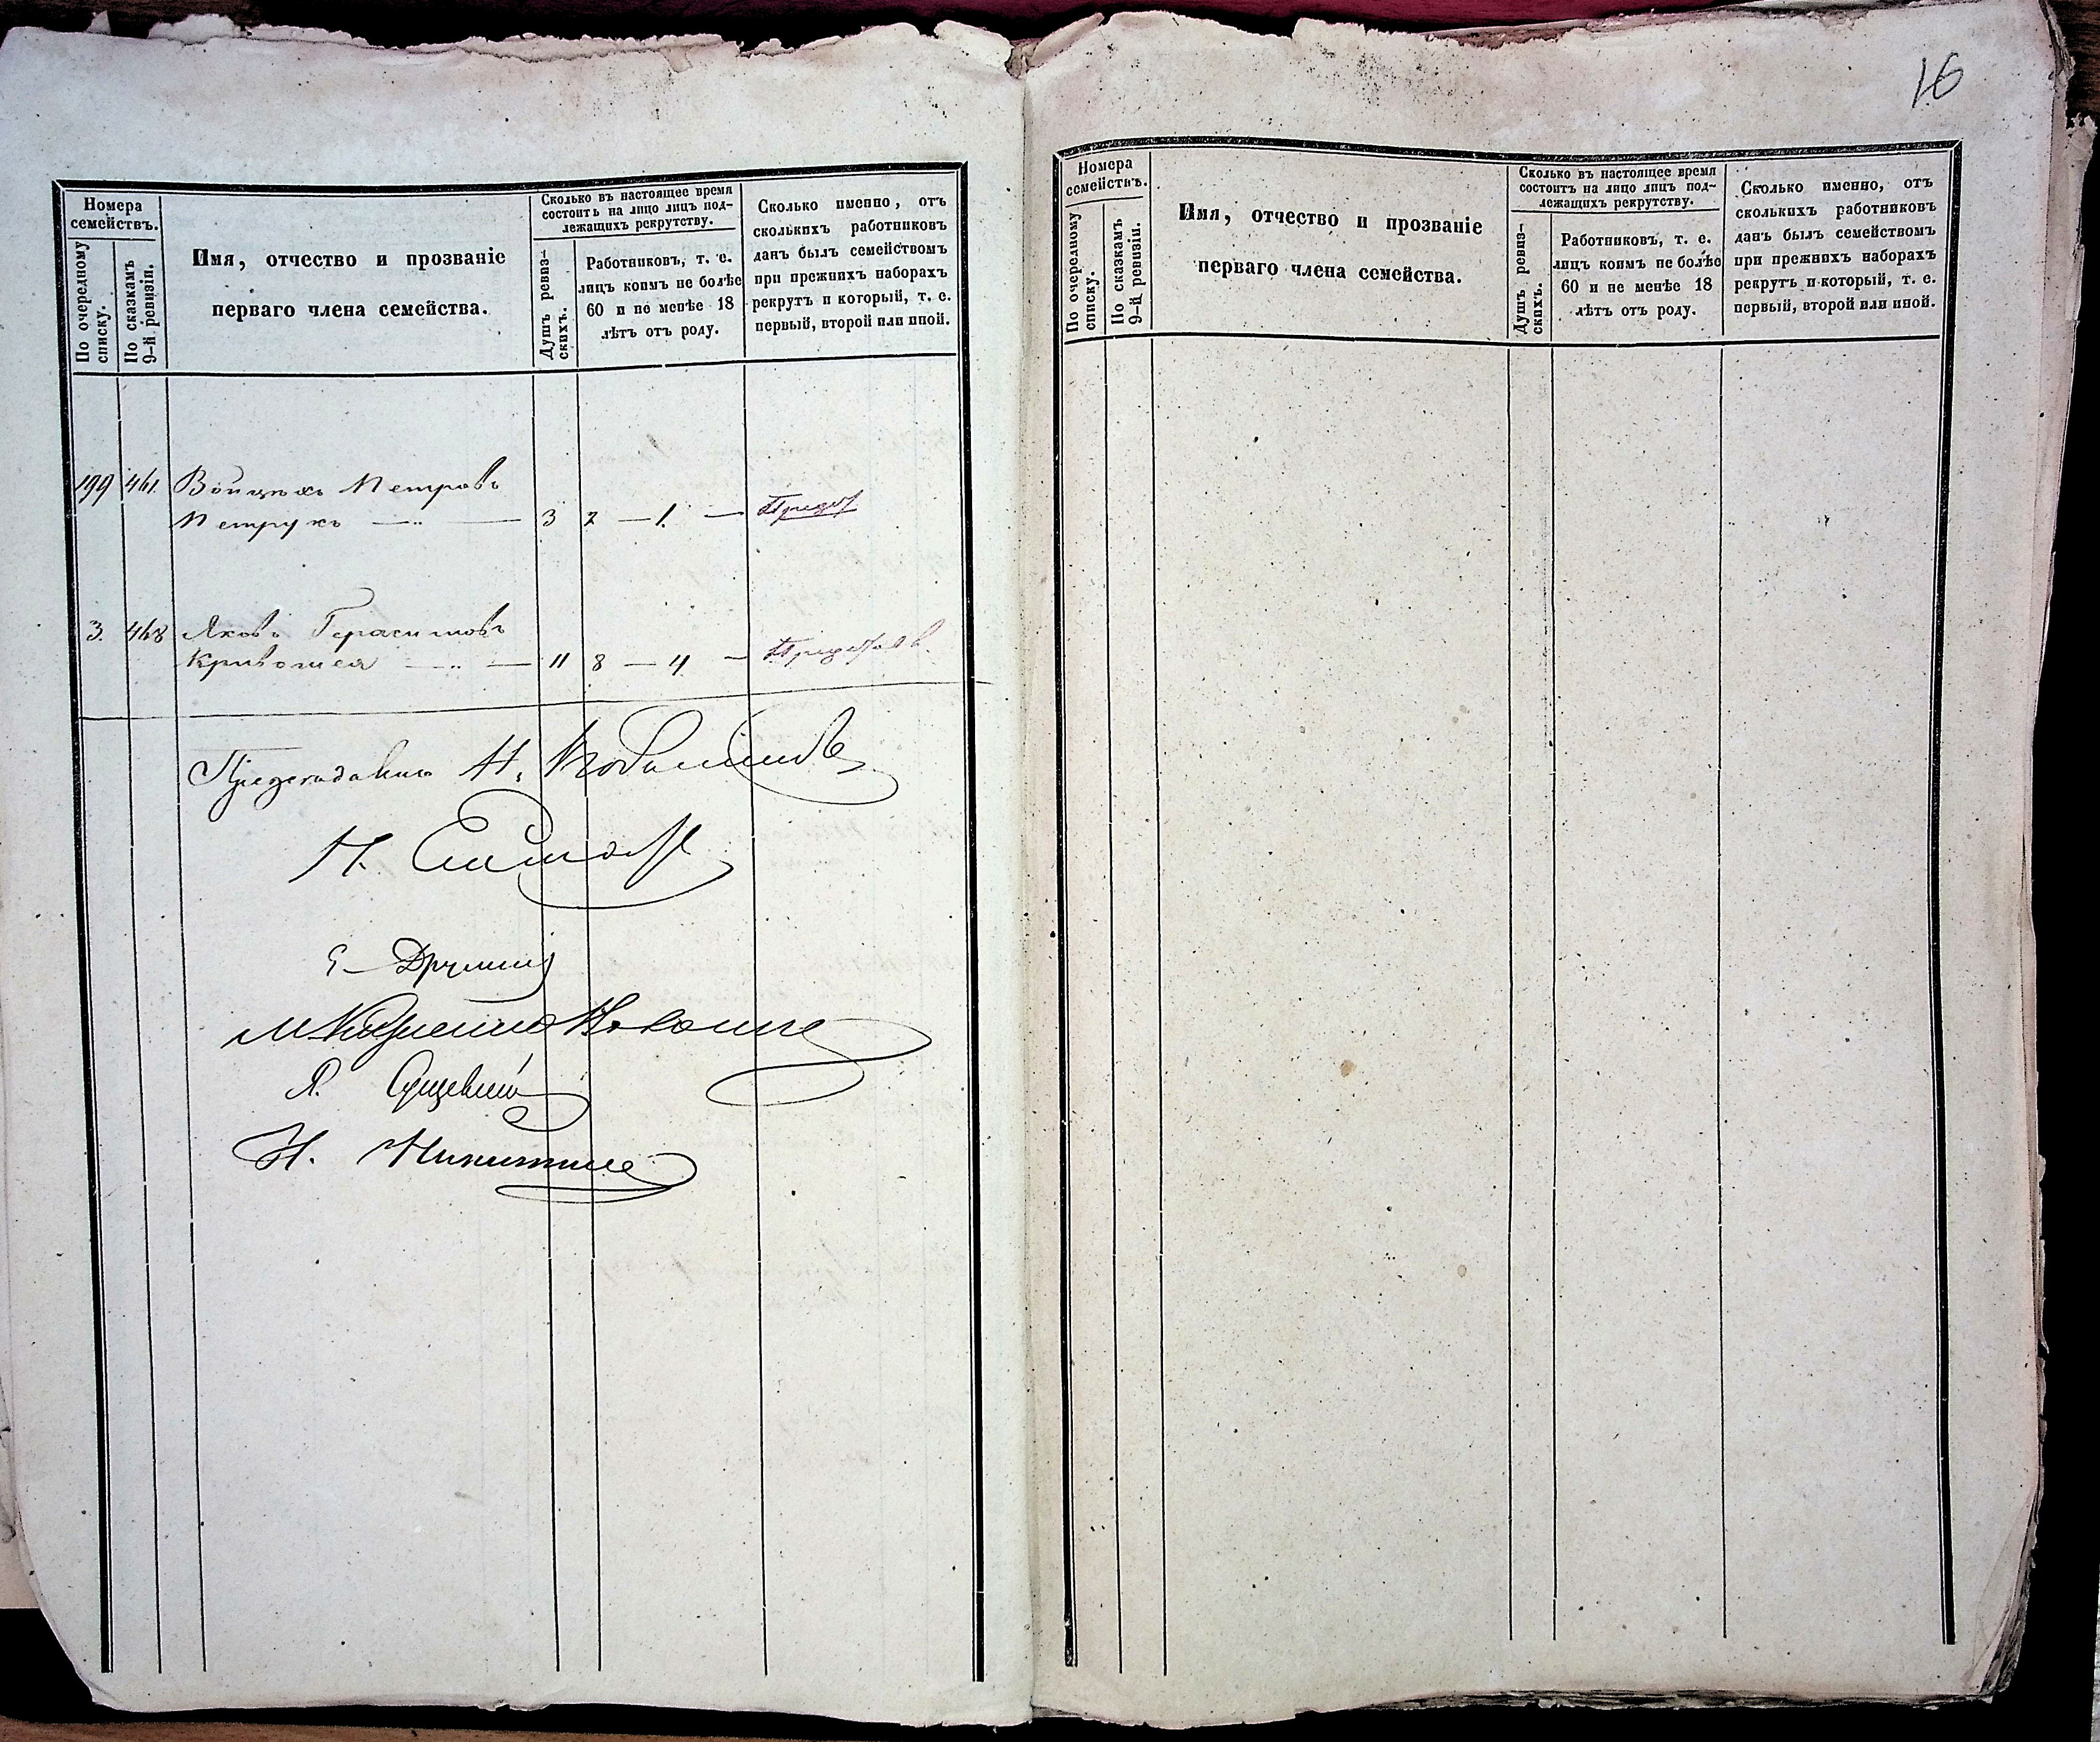 16
Номера
семействъ.
По очередному
списку.
По сказкамъ
9-й ревизіи.
Имя, отчество и прозваніе
перваго члена семейства.
Сколько въ настоящее время
состоитъ на лицо лицъ под-
лежащихъ рекрутству.
Душъ ревиз-
скихъ.
Работниковъ, т. е.
лицъ коимъ не болѣе
60 и не менѣе 18
лѣтъ отъ роду.
Сколько именно, отъ
сколькихъ работниковъ
данъ былъ семействомъ
при прежнихъ наборахъ
рекрутъ и который, т. е.
первый, второй или иной.
199 461. Войцѣхъ Петровъ
Петрукъ — „ — 3 2 — 1. —
3. 468 Яковъ Герасимовъ
Кривошея — „ — 11 8 — 4 —
Н.
Н.
М.
Я.
Н. Никитинъ
Номера
семействъ.
По очередному
списку.
По сказкамъ
9-й ревизіи.
Имя, отчество и прозваніе
перваго члена семейства.
Сколько въ настоящее время
состоитъ на лицо лицъ под-
лежащихъ рекрутству.
Душъ ревиз-
скихъ.
Работниковъ, т. е.
лицъ коимъ не болѣе
60 и не менѣе 18
лѣтъ отъ роду.
Сколько именно, отъ
сколькихъ работниковъ
данъ былъ семействомъ
при прежнихъ наборахъ
рекрутъ и который, т. е.
первый, второй или иной.